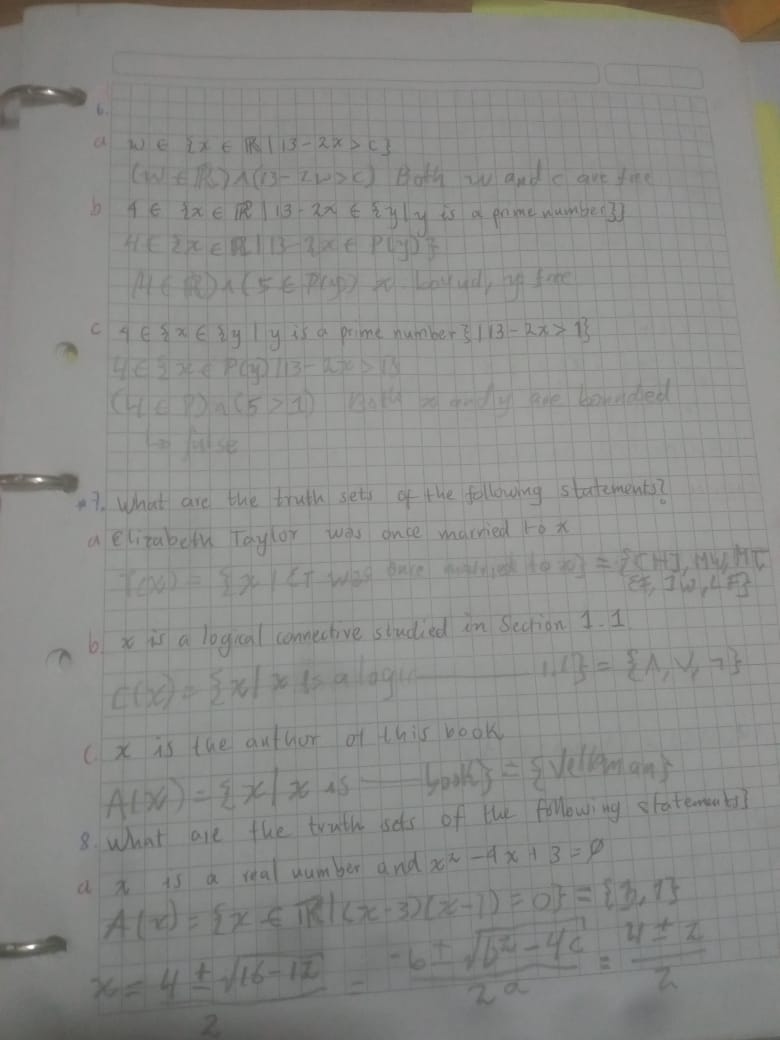 6.
a w ∈ {x ∈ ℝ | 13 - 2x > c}
(w ∈ ℝ) ∧ (13 - 2w > c) Both w and c are free
b 4 ∈ {x ∈ ℝ | 13 - 2x ∈ {y | y is a prime number}}
4 ∈ {x ∈ ℝ | 13 - 2x ∈ P(y)}
(4 ∈ ℝ) ∧ (5 ∈ P(y)) x y free
c 4 ∈ {x ∈ {y | y is a prime number} | 13 - 2x > 1}
4 ∈ {x ∈ P(y) | 13 - 2x > 1}
(4 ∈ P) ∧ (5 > 1) Both x and y are bounded
↳ false
7. What are the truth sets of the following statements?
a Elizabeth Taylor was once married to x
T(x) = {x | ET was once married to x} = {CH, MW, MT,
EF, JW, LF}
b x is a logical connective studied in Section 1.1
C(x) = {x | x is a logic 1.1} = {∧, ∨, ¬}
c x is the author of this book
A(x) = {x | x is book} = {Velleman}
8. What are the truth sets of the following statements}
a x is a real number and x² - 4x + 3 = 0
A(x) = {x ∈ ℝ | (x-3)(x-1) = 0} = {3, 1}
x = 4 ± √16 - 12 / 2 = -b ± √b² - 4c / 2a = 4 ± 2 / 2